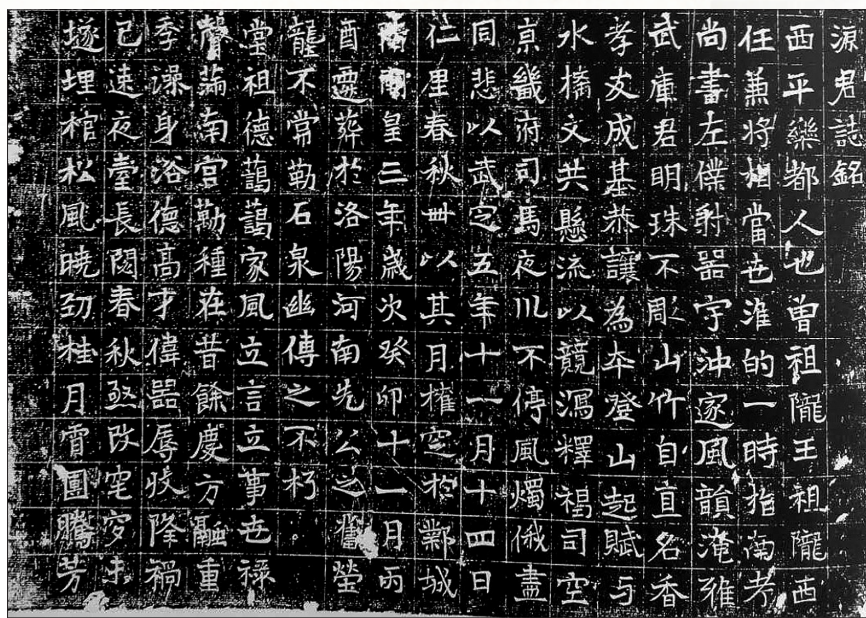 源君誌銘
西平樂都人也曾祖隴王祖隴西
任兼將相當世淮的一時指南考
尚書左僕射器宇沖邃風韻淹雅
武庫君明珠不彫山竹自直名香
孝友成基恭讓為本登山起賦与
水橋文共懸流以競瀉釋褐司空
京畿府司馬夜川不停風燭俄盡
同悲以武定五年十一月十四日
仁里春秋卌以其月權定於鄴城
皇三年歲次癸卯十一月丙
酉遷葬於洛陽河南先公之舊塋
龍不常勒石泉幽傳之不朽。
堂祖德藹藹家風立言立事世祿
南宮勒種在昔餘慶方融重
季澡身浴德高才偉器辱收隆禍
已遠夜臺長閟春秋亟改窀穸未
埋棺松風曉勁桂月霄團騰芳